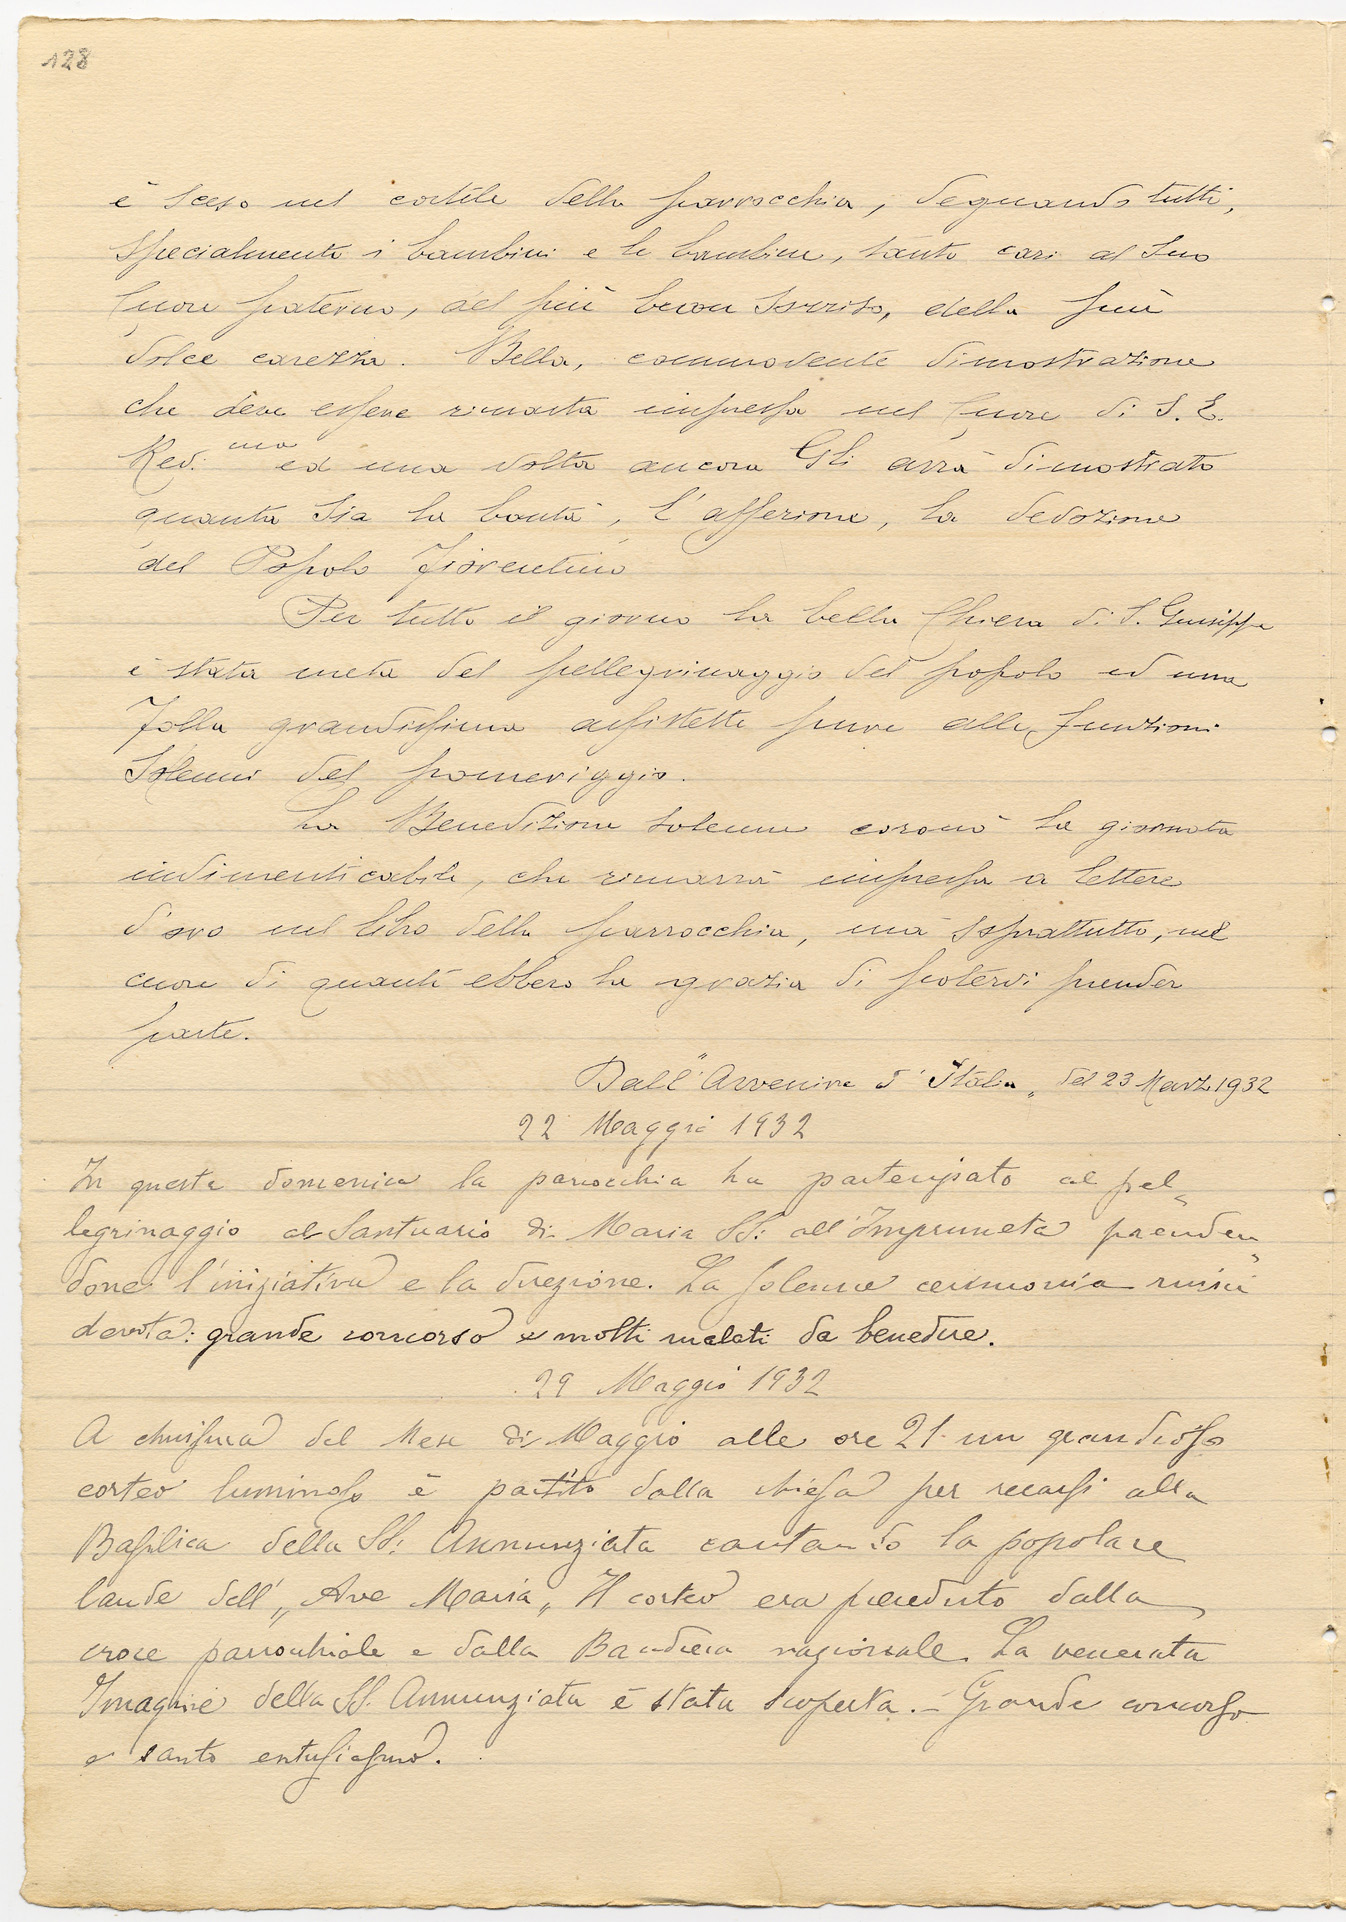 128
è sceso nel cortile della parrocchia, degnando tutti,
specialmente i bambini e le bambine, tanto cari al Suo
Cuore paterno, del più buon sorriso, della più
dolce carezza. Bella, commovente dimostrazione
che deve essere rimasta impressa nel Cuore di S. E.
Rev.ma ed una volta ancora Gli avrà dimostrato
quanta sia la bontà, l'affezione, la devozione
del Popolo Fiorentino
Per tutto il giorno la bella Chiesa di S. Giuseppe
è stata meta del pellegrinaggio del popolo ed una
folla grandissima assistette pure alle funzioni
Solenni del pomeriggio.
La Benedizione solenne coronò la giornata
indimenticabile, che rimarrà impressa a lettere
d'oro nel libro della parrocchia, ma soprattutto, nel
cuore di quanti ebbero la grazia di potervi prender
parte.
Dall'"Avvenire d'Italia„ del 23 Marz. 1932
22 Maggio 1932
In questa domenica la parrocchia ha partecipato al pel-
legrinaggio al Santuario di Maria SS: all'Impruneta prenden-
done l'iniziativa e la direzione. La solenne cerimonia riuscì
devota: grande concorso e molti malati da benedire.
29 Maggio 1932
A chiusura del Mese di Maggio alle ore 21 un grandioso
corteo luminoso è partito dalla chiesa per recarsi alla
Basilica della SS: Annunziata cantando la popolare
laude dell'„Ave Maria„ Il corteo era preceduto dalla
croce parrocchiale e dalla Bandiera nazionale. La venerata
Imagine della SS. Annunziata è stata scoperta. - Grande concorso
e santo entusiasmo.